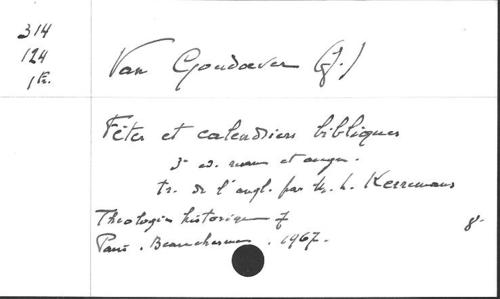 314
124
1 Ex.
Van Goudoever (J.)
Fêtes et calendriers bibliques
3e éd. revue et augm.
tr. de l'angl. par M. L. Kerremans
Théologie historique 7
8°
Paris. Beauchesne. 1967.